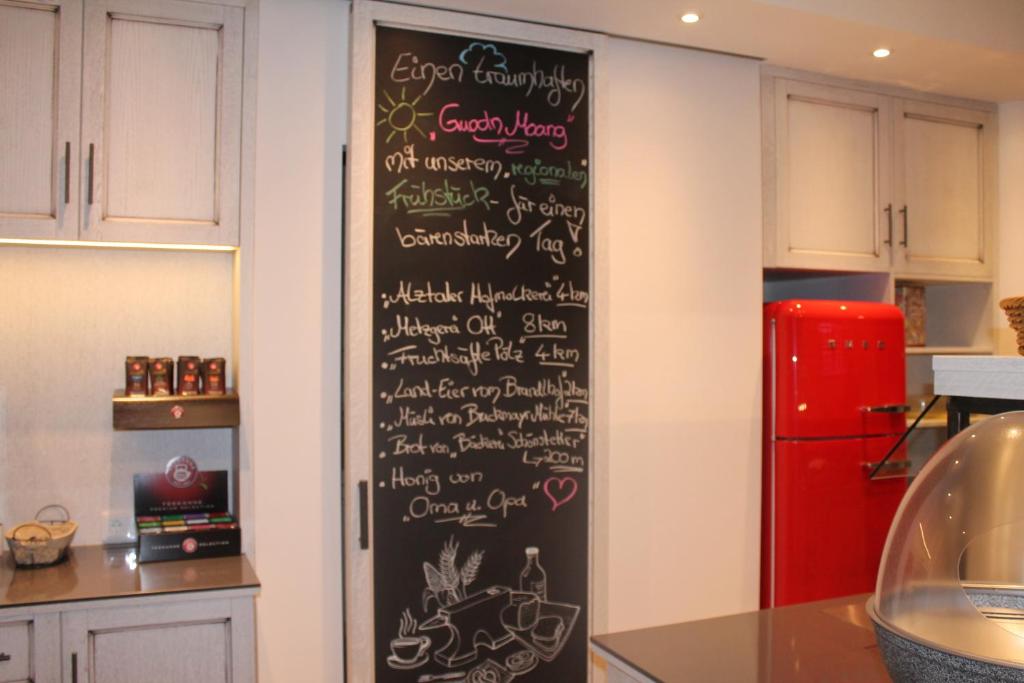 Einen traumhaften
„Guadn Moang"
mit unserem „regionalen
Frühstück - für einen
bärenstarken Tag!
„Alztaler Hofmolkerei" 4 km
„Metzgerei Ott" 8 km
„Fruchtsäfte Pölz" 4 km
„Land-Eier vom Brandlhof" 2 km
„Müsli von Bruckmayr Mühle" 7 km
Brot von „Bäckerei Schönstetter"
↳ 200 m
Honig von
„Oma u. Opa" ♡
SMEG
TEEKANNE
PREMIUM SELECTION
TEEKANNE SELECTION